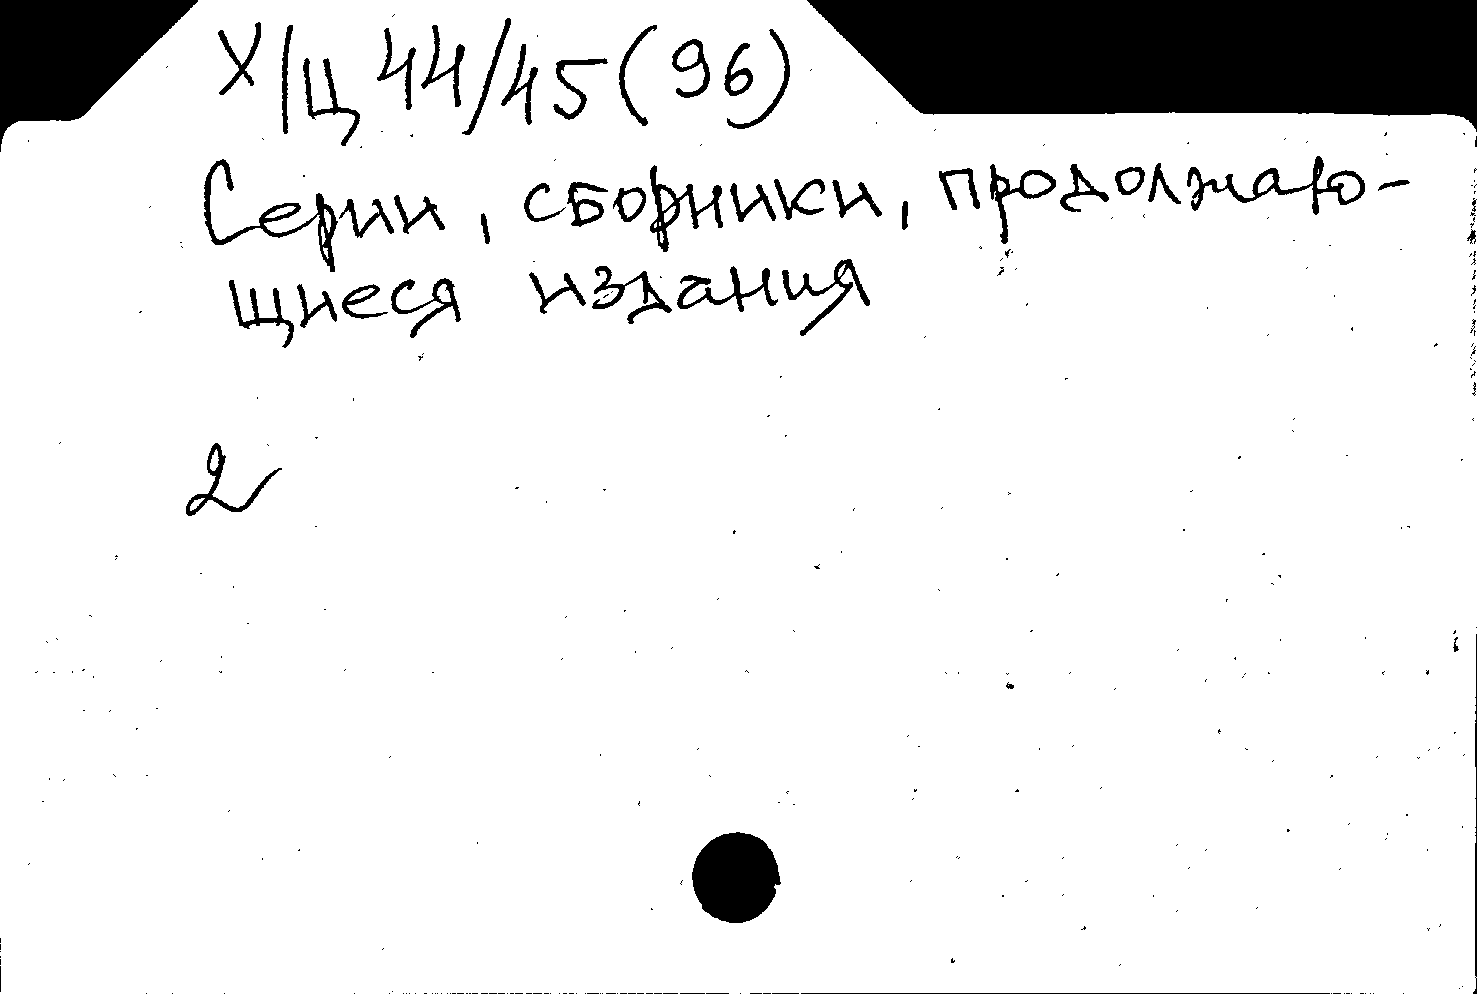 Х/Ц 44/45(96)
Серии, сборники, продолжаю-
щиеся издания
2